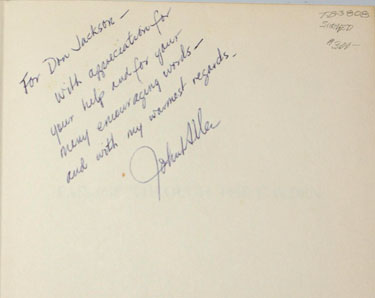 For Don Jackson —
with appreciation for
your help and for your
many encouraging words —
and with my warmest regards.
John
SIGNED